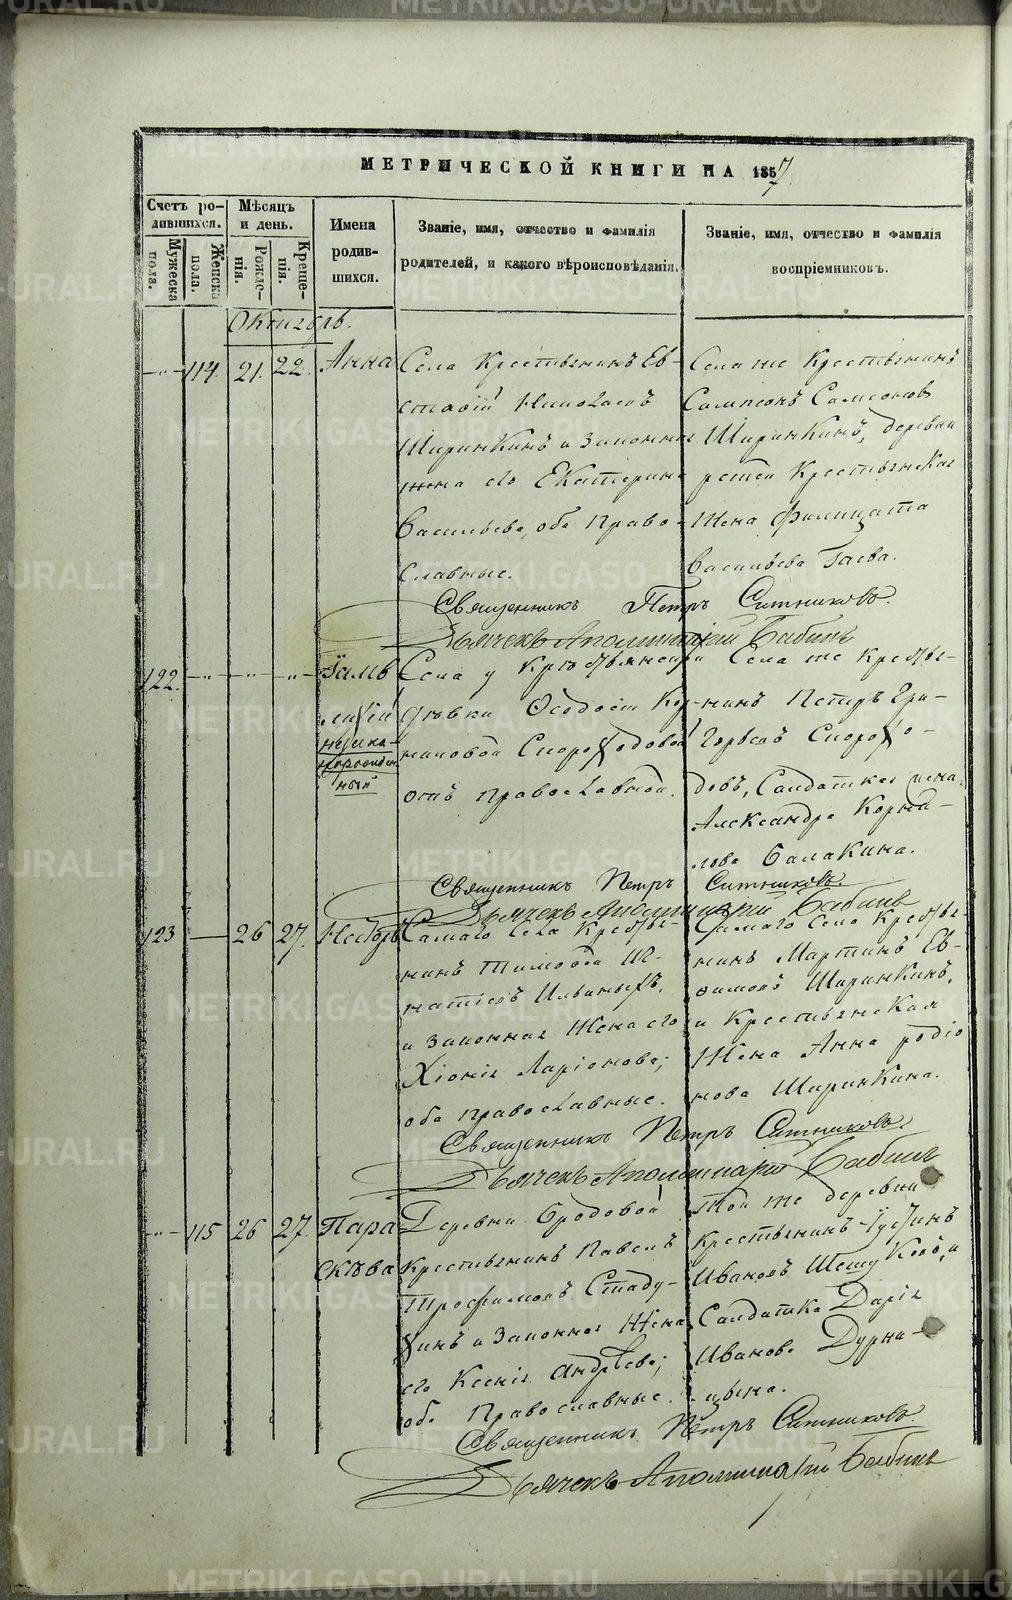 МЕТРИЧЕСКОЙ КНИГИ НА 1857
Счетъ ро-
дившихся.
Мужеска пола.
Женска пола.
Мѣсяцъ
и день.
Рожде-
нія.
Креще-
нія.
Имена
родив-
шихся.
Званіе, имя, отчество и фамилія
родителей, и какого вѣроисповѣданія.
Званіе, имя, отчество и фамилія
воспріемниковъ.
Октябрь.
114. 21. 22. Анна
Села Крестьянинъ Ев-
стафій Николаевъ
Ширинкинъ и законная
жена его Екатерина
Васильева, оба Право-
славные.
Села же Крестьянинъ
Сампсонъ Самсоновъ
Ширинкинъ, деревни
Крестьянская
Жена Филицата
Васильева Гаева.
Священникъ Петръ Ситниковъ.
Дьячекъ Аполлинарій Бабинъ
122.
Села у Крестьянской
дѣвки Ѳеодосіи Кор-
ниловой Скороходовой
онъ православной.
Села же Кресть-
нинъ Петръ Гри-
горьевъ Скорохо-
довъ, Салдатская жена
Александра Корни-
лова Балакина.
Священникъ Петръ Ситниковъ.
Дьячекъ Аполлинарій Бабинъ
123 26 27. Несторъ
Самаго Села Крестья-
нинъ Тимофей Иг-
натіевъ Ильиныхъ,
и законная Жена его
Хіонія Ларіонова;
оба православные.
Самаго Села Крестья-
нинъ Мартинъ Ев-
фимовъ Ширинкинъ,
и Крестьянская
Жена Анна родіо
нова Ширинкина.
Священникъ Петръ Ситниковъ.
Дьячекъ Аполлинарій Бабинъ
115 26 27. Пара
скѣва
Деревни Бродовой
Крестьянинъ Павелъ
Трофимовъ Стаду-
хинъ и Законная Жена
его Ксенія Андрѣева;
оба Православные.
Той же деревни
Крестьянинъ Іустинъ
Ивановъ Шешуковъ, и
Салдатка Дарія
Иванова Дурни-
цына.
Священникъ Петръ Ситниковъ.
Дьячекъ Аполлинарій Бабинъ
METRIKI.GASO-URAL.RU